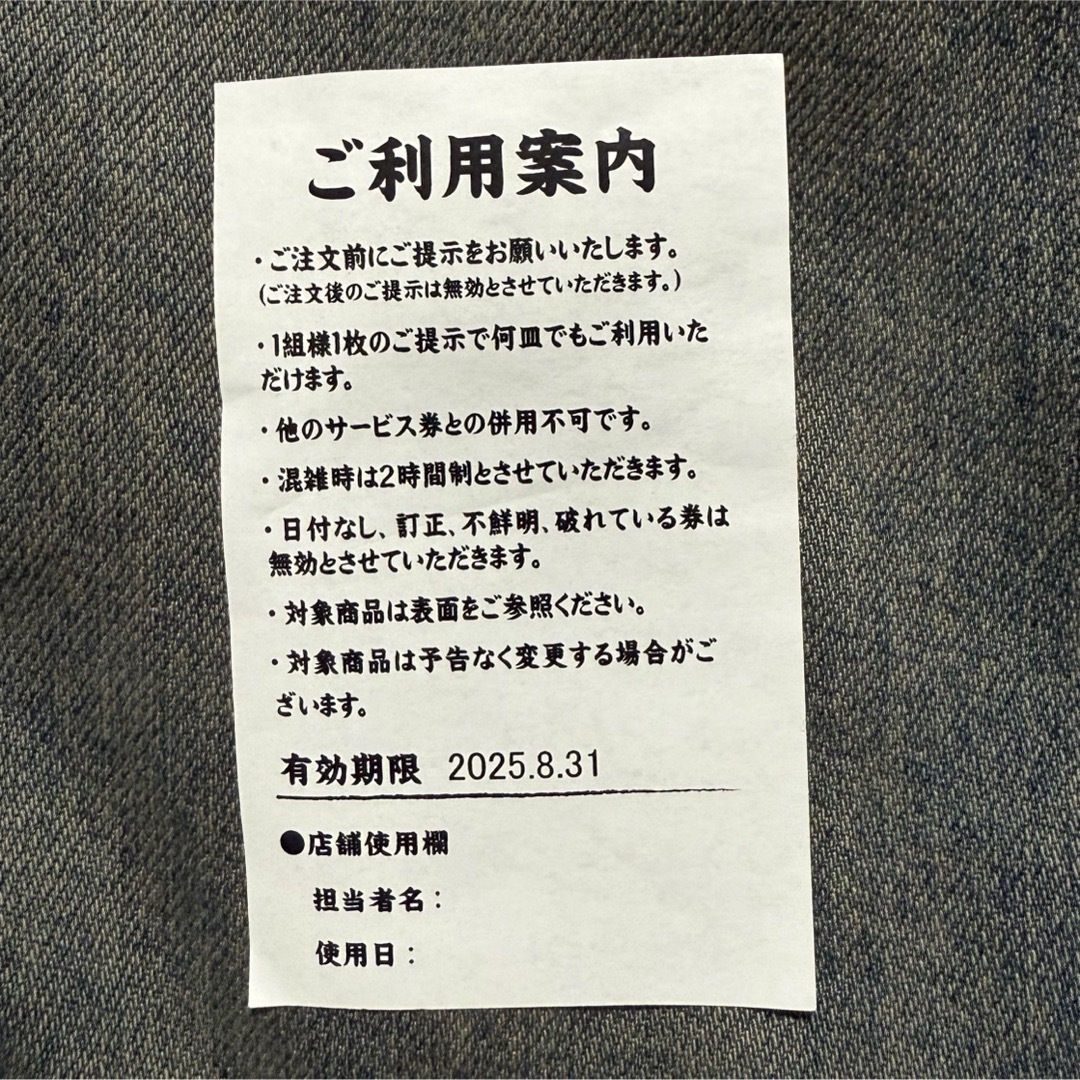 ご利用案内
・ご注文前にご提示をお願いいたします。
(ご注文後のご提示は無効とさせていただきます。)
・1組様1枚のご提示で何皿でもご利用いた
だけます。
・他のサービス券との併用不可です。
・混雑時は2時間制とさせていただきます。
・日付なし、訂正、不鮮明、破れている券は
無効とさせていただきます。
・対象商品は表面をご参照ください。
・対象商品は予告なく変更する場合がご
ざいます。
有効期限 2025.8.31
●店舗使用欄
担当者名：
使用日：